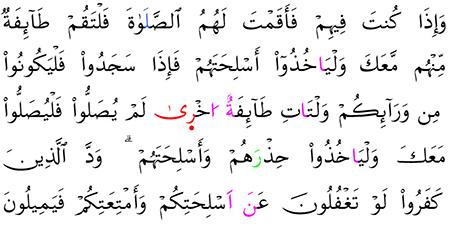 وَإِذَا كُنتَ فِيهِمْ فَأَقَمْتَ لَهُمُ ٱلصَّلَوٰةَ فَلْتَقُمْ طَآئِفَةٌ
مِّنْهُم مَّعَكَ وَلْيَاخُذُوٓاْ أَسْلِحَتَهُمْ فَإِذَا سَجَدُواْ فَلْيَكُونُواْ
مِن وَرَآئِكُمْ وَلْتَاتِ طَآئِفَةٌ اخْر۪ىٰ لَمْ يُصَلُّواْ فَلْيُصَلُّواْ
مَعَكَ وَلْيَاخُذُواْ حِذْرَهُمْ وَأَسْلِحَتَهُمْ ۗ وَدَّ ٱلَّذِينَ
كَفَرُواْ لَوْ تَغْفُلُونَ عَنَ اَسْلِحَتِكُمْ وَأَمْتِعَتِكُمْ فَيَمِيلُونَ